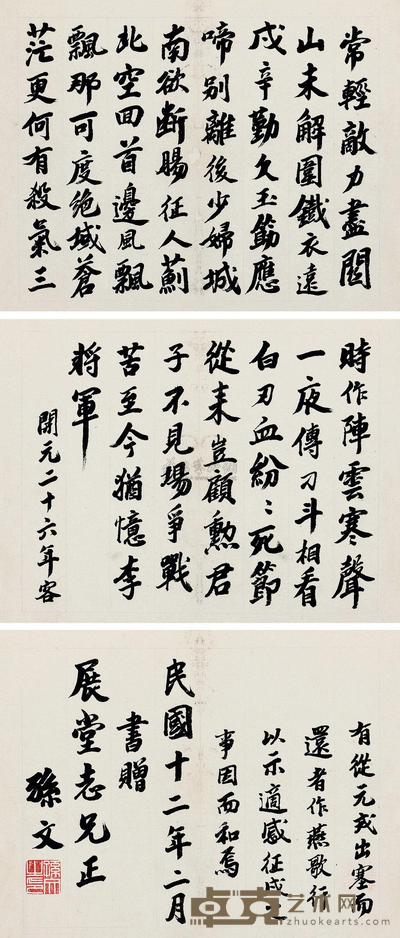 常輕敵力盡關
山未解圍鐵衣遠
戍辛勤久玉筯應
啼別離後少婦城
南欲斷腸征人薊
北空回首邊風飄
飄那可度絶域蒼
茫更何有殺氣三
時作陣雲寒聲
一夜傳刁斗相看
白刃血紛〻死節
從来豈顧勲君
子不見場爭戰
苦至今猶憶李
將軍
開元二十六年客
有從元戎出塞而
還者作燕歌行
以示適感征戍之
事因而和焉
民國十二年二月
書贈
展堂志兄正
孫文
艺术网
zhuokearts.com